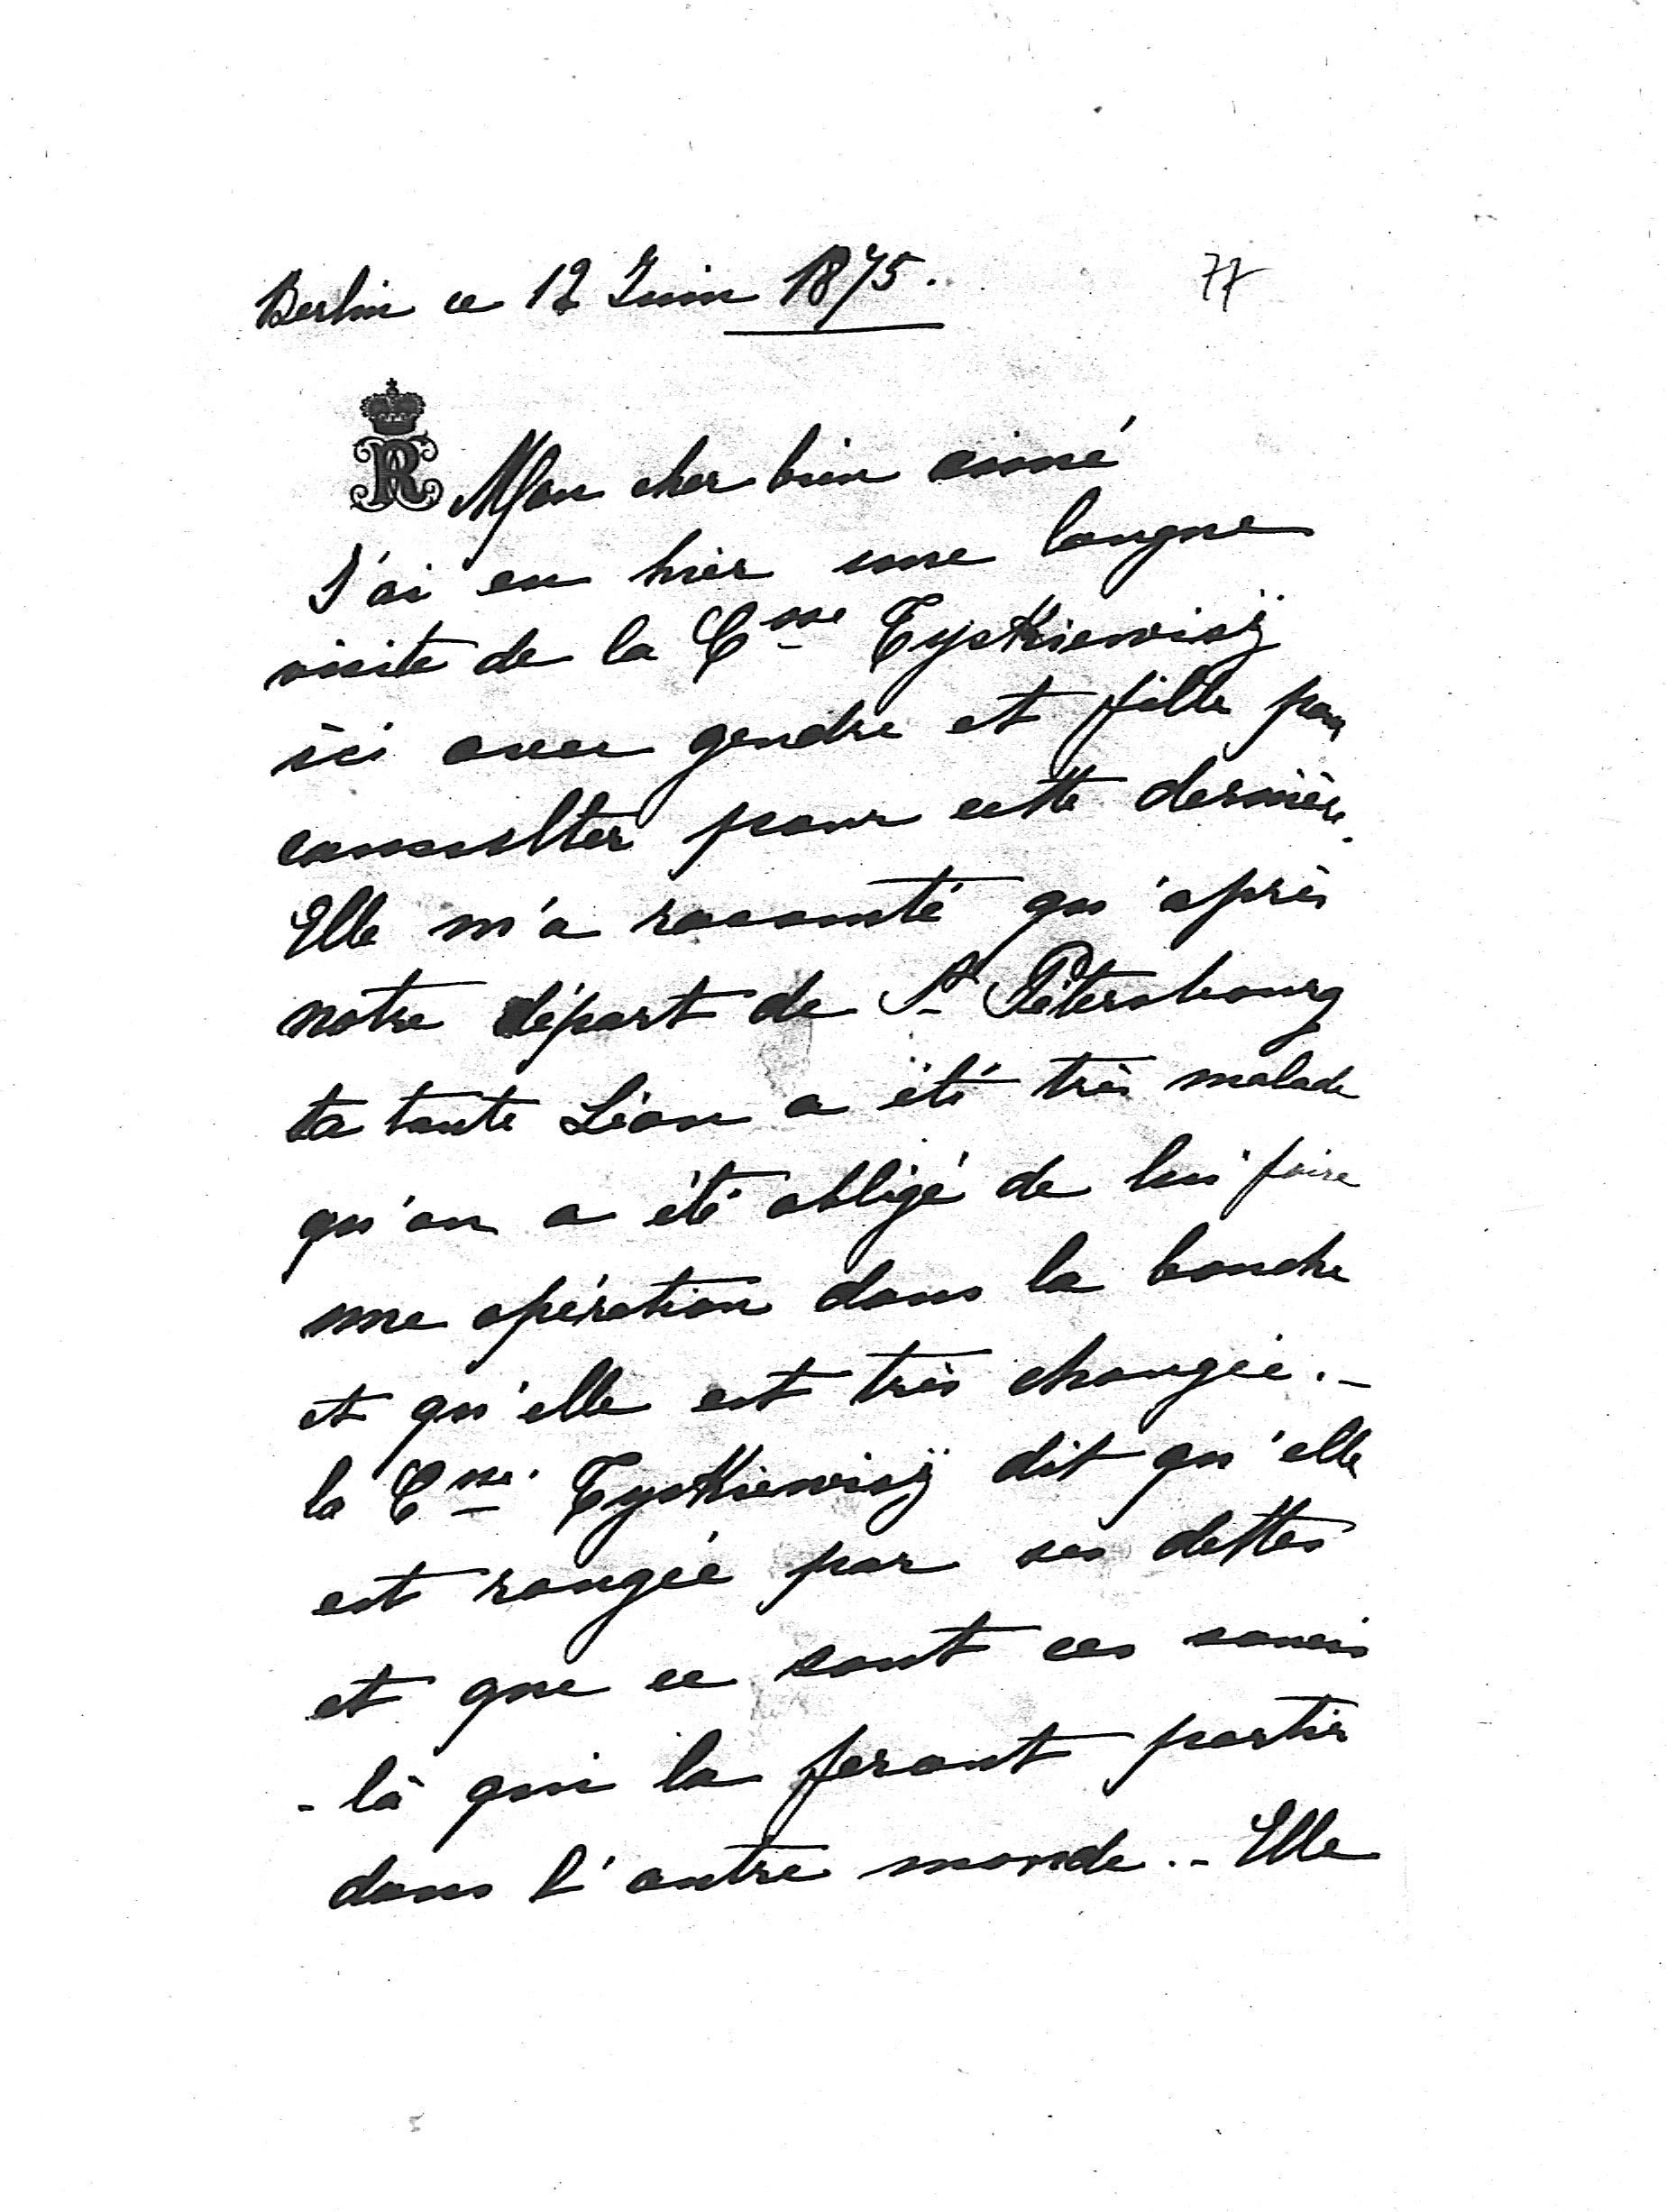 Berlin ce 12 Juin 1875.
77
R
Mon cher bien aimé
J'ai eu hier une longue
visite de la Csse Tyskiewisz
ici avec gendre et fille pour
consulter pour cette dernière.
Elle m'a raconté qu'après
notre départ de St Pétersbourg
ta tante Léon a été très malade
qu'on a été obligé de lui faire
une opération dans la bouche
et qu'elle est très changée.-
la Csse Tyskiewisz dit qu'elle
est rongée par ses dettes
et que ce sont ces soucis
-là qui la feront partir
dans l'autre monde.- Elle